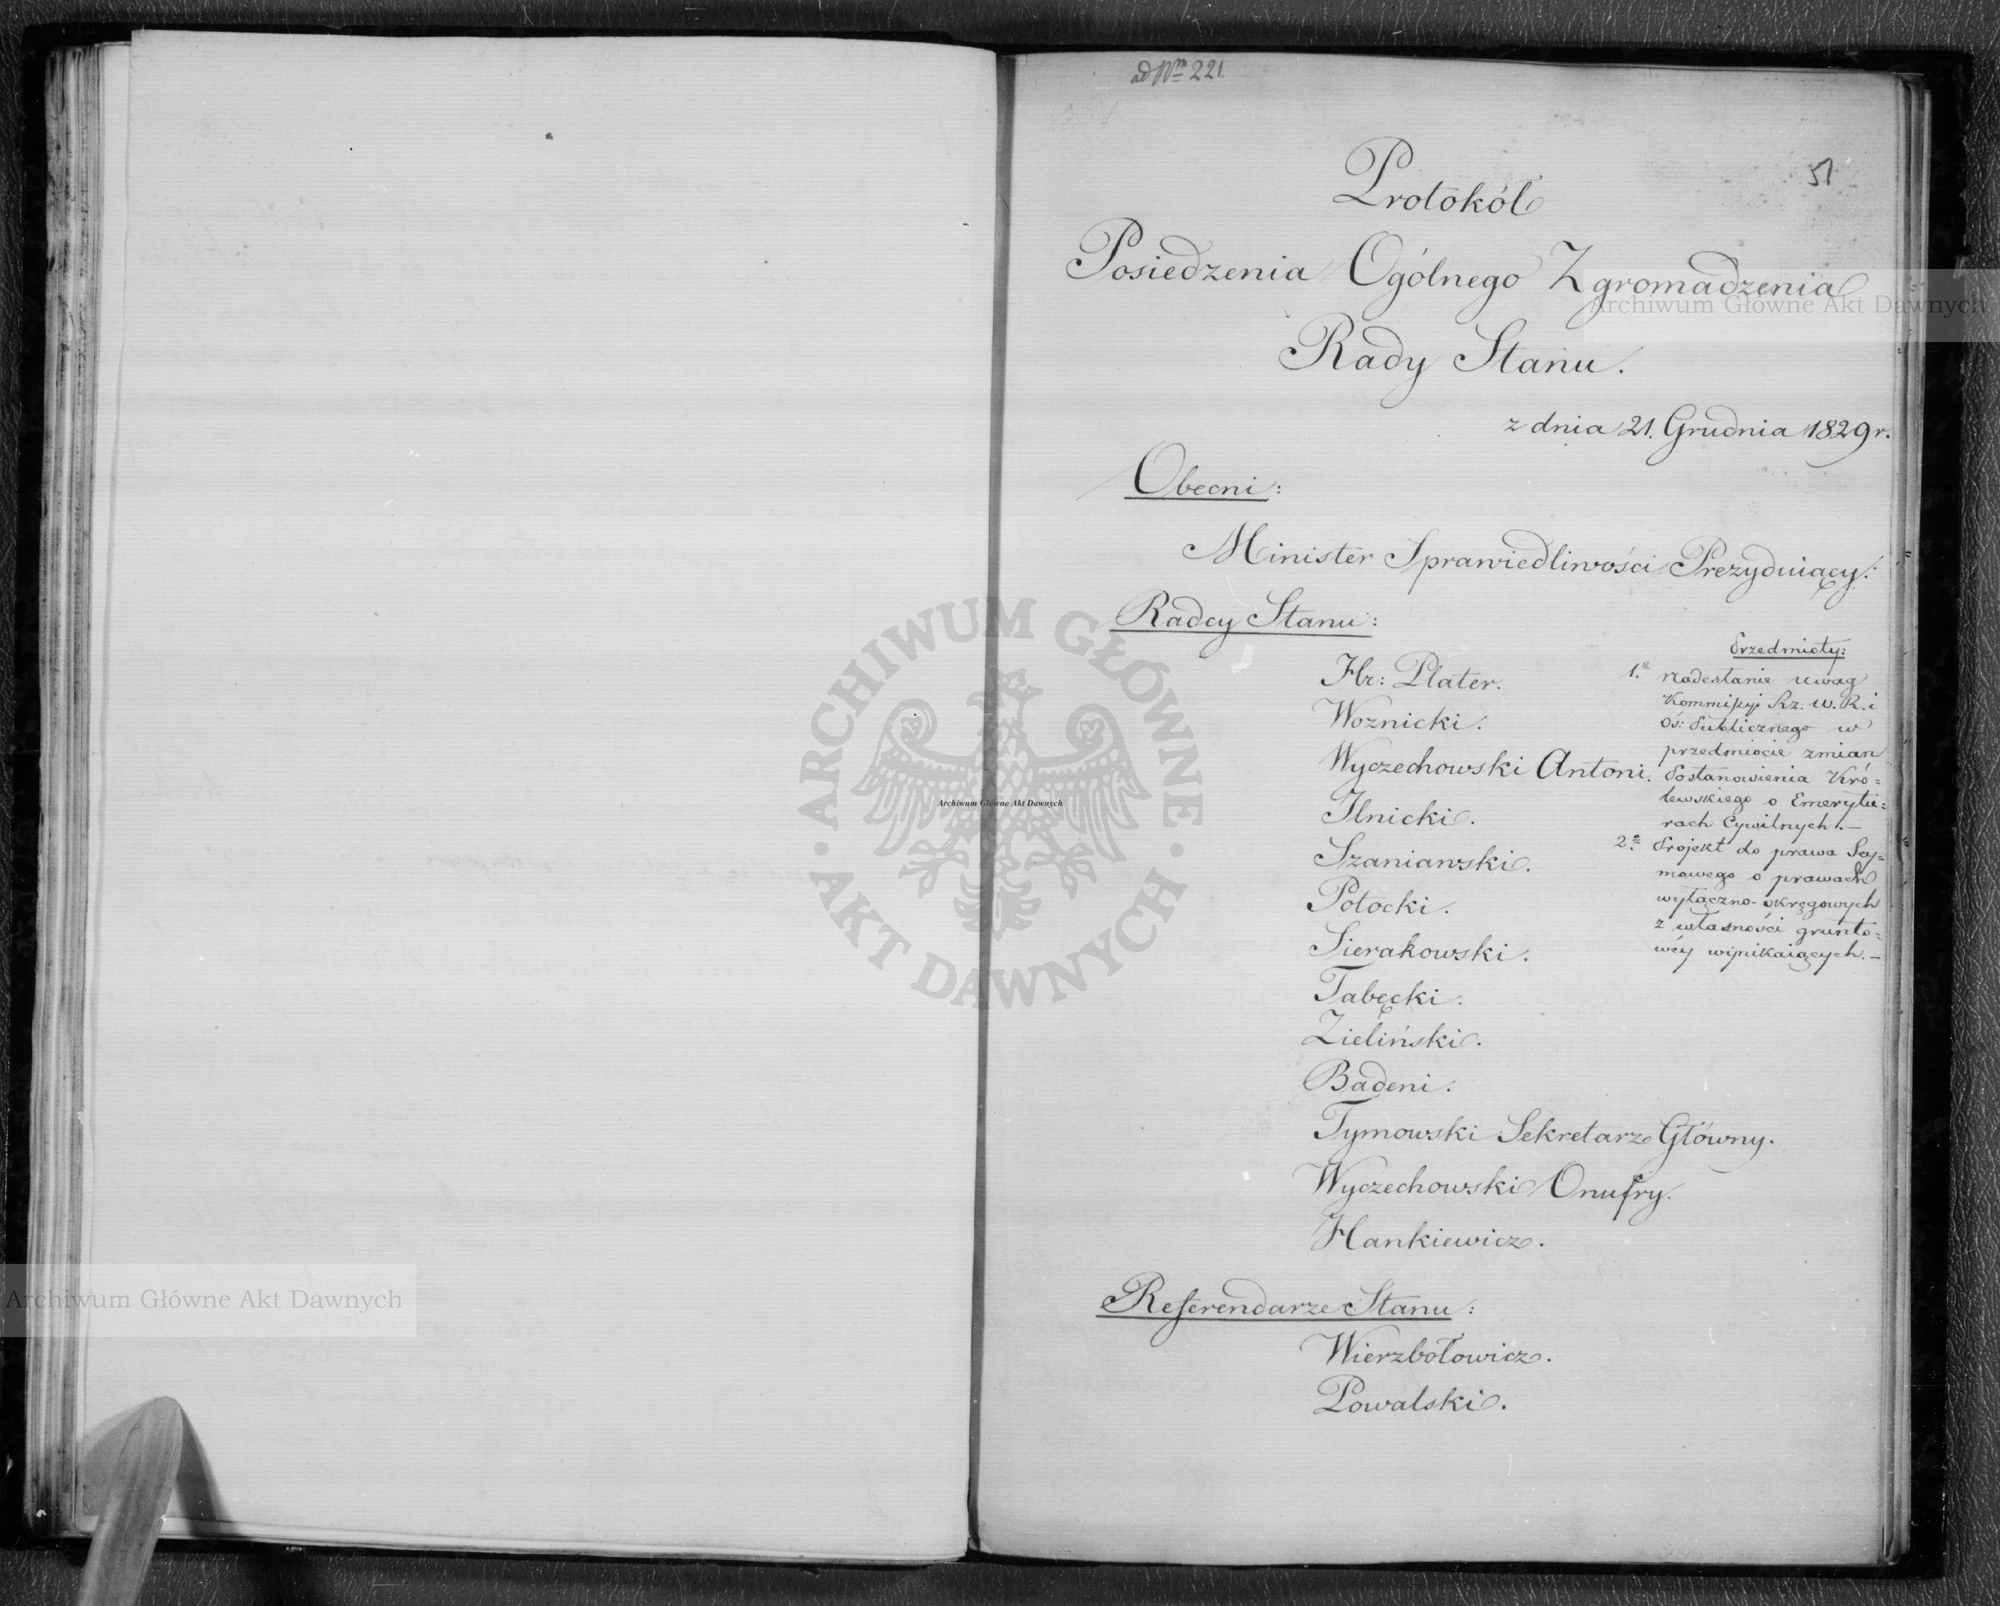 ad Nm 221.
51
Protokół
Posiedzenia Ogólnego Zgromadzenia
Rady Stanu.
z dnia 21. Grudnia 1829 r.
Obecni:
Minister Sprawiedliwości Prezyduiący:
Radcy Stanu:
Hr: Plater.
Woznicki.
Wyczechowski Antoni.
Ilnicki.
Szaniawski.
Potocki.
Sierakowski.
Tabęcki.
Zieliński.
Badeni.
Tymowski Sekretarz Główny.
Wyczechowski Onufry.
Hankiewicz.
Przedmioty:
1.e Nadesłanie uwag
Kommissyi Rz: W. R. i
Oś: Publicznego w
przedmiocie zmian
Postanowienia Kró=
lewskiego o Emerytu=
rach Cywilnych.—
2.e Projekt do prawa Sey=
mowego o prawach
wyłączno-okręgowych
z własności grunto=
wéy wynikaiących.—
Referendarze Stanu:
Wierzbołowicz.
Powalski.
Archiwum Główne Akt Dawnych
ARCHIWUM GŁÓWNE
AKT DAWNYCH
Archiwum Główne Akt Dawnych
Archiwum Główne Akt Dawnych